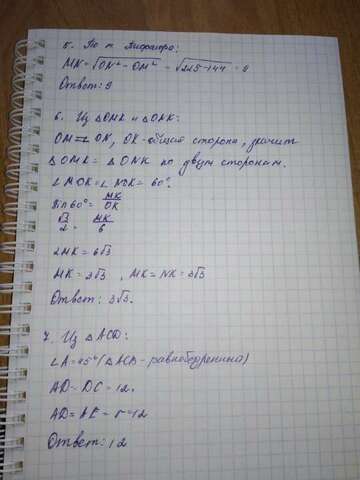 5. По т. Пифагора:
MN = √ON² - OM² = √225-144 = 9
Ответ: 9
6. Из △OMK и △ONK:
OM = ON, OK - общая сторона, значит
△OMK = △ONK по двум сторонам.
∠MOK = ∠NOK = 60°.
Sin 60° = MK/OK
√3/2 = MK/6
2MK = 6√3
MK = 3√3, MK = NK = 3√3
Ответ: 3√3.
7. Из △ACD:
∠A = 45° (△ACD - равнобедренный)
AD = DC = 12.
AD = AE = r = 12
Ответ: 12